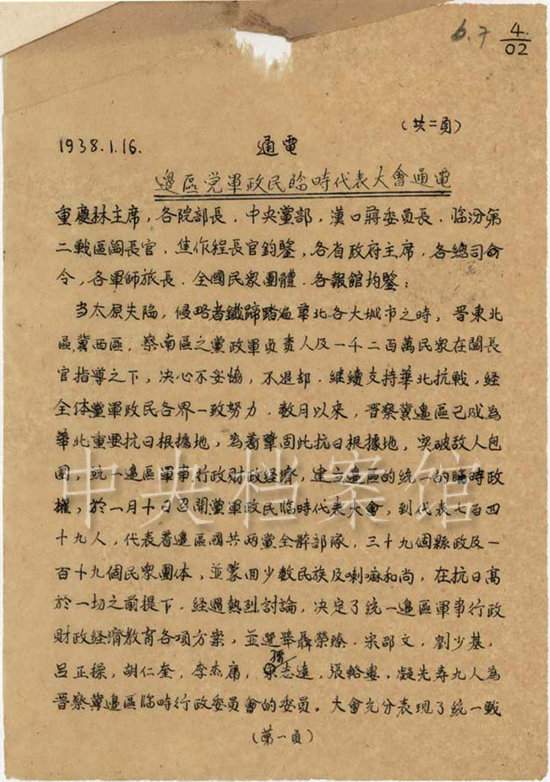 6.7 4/02
(共二頁)
1938.1.16. 通電
邊區党軍政民臨時代表大會通電
重慶林主席,各院部長.中央黨部,漢口蔣委員長.臨汾第
二戰區閻長官.焦作程長官鈞鑒,各省政府主席.各總司命
令,各軍師旅長.全國民衆團體.各報館均鑒:
當太原失陷,侵略者鐵蹄踏遍華北各大城市之時,晋東北
區冀西區.察南區之黨政軍負責人及一千二百萬民衆在閻長
官指導之下,决心不妥協,不退却.繼續支持華北抗戰,經
全体黨軍政民各界一致努力.数月以來,晋察冀邊區已成為
華北重要抗日根據地,為着鞏固此抗日根據地,突破敌人包
圍,統一邊區軍事行政財政經濟,建立邊區的統一的臨時政
權,於一月十日召開黨軍政民臨時代表大會,到代表七百四
十九人,代表着邊區國共两黨全幹部隊.三十九個縣政及一
百十九個民衆團体,並蒙回少數民族及喇嘛和尚,在抗日高
於一切之前提下.經過熱烈討論,决定了統一邊區軍事行政
財政經濟教育各項方案,並選舉聶榮臻.宋邵文,劉少基,
呂正操,胡仁奎,李杰庸,志遠,張蘇,凝先寿九人為
晋察冀邊區臨時行政委員會的委員.大會充分表現了統一戰
(第一頁)
中央档案馆